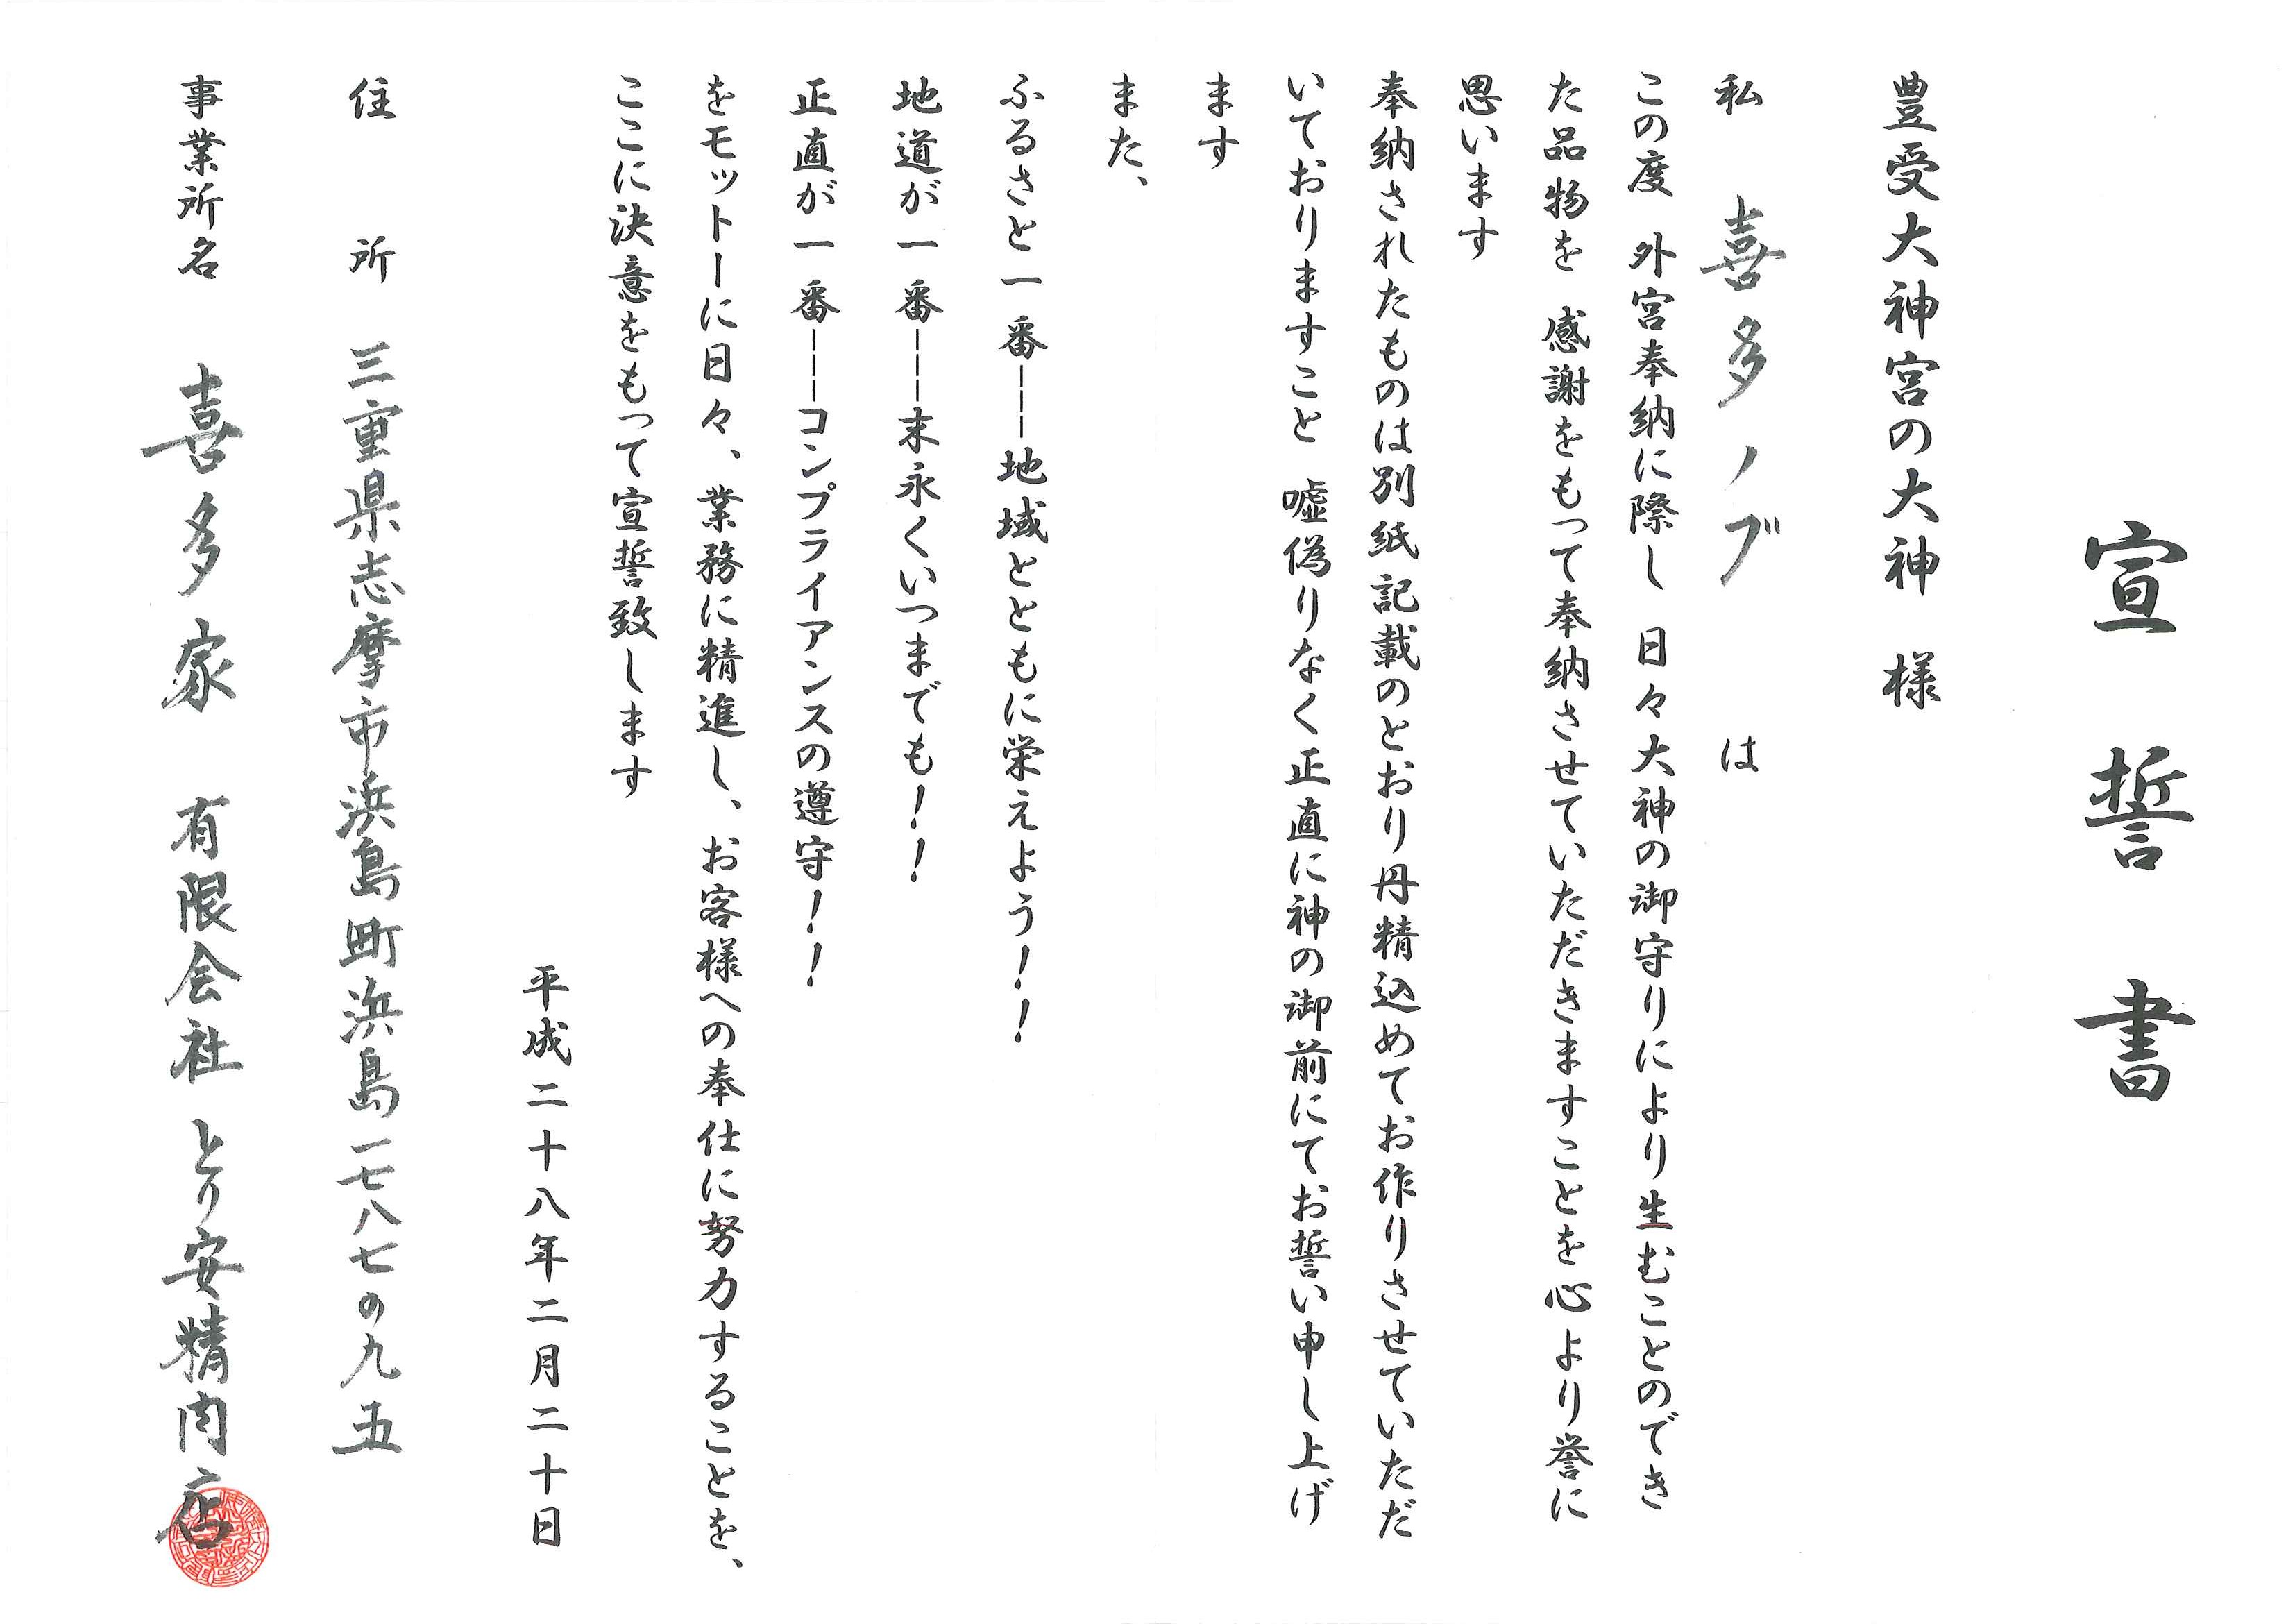 宣誓書
豊受大神宮の大神　様
私　喜多ノブ　は
この度　外宮奉納に際し　日々大神の御守りにより生むことのでき
た品物を　感謝をもって奉納させていただきますことを心より誉に
思います
奉納されたものは別紙記載のとおり丹精込めてお作りさせていただ
いておりますこと　嘘偽りなく正直に神の御前にてお誓い申し上げ
ます
また、
ふるさと一番―――地域とともに栄えよう！！
地道が一番―――末永くいつまでも！！
正直が一番―――コンプライアンスの遵守！！
をモットーに日々、業務に精進し、お客様への奉仕に努力することを、
ここに決意をもって宣誓致します
平成二十八年二月二十日
住　所　三重県志摩市浜島町浜島一七八七の九五
事業所名　喜多家　有限会社　とり安精肉店